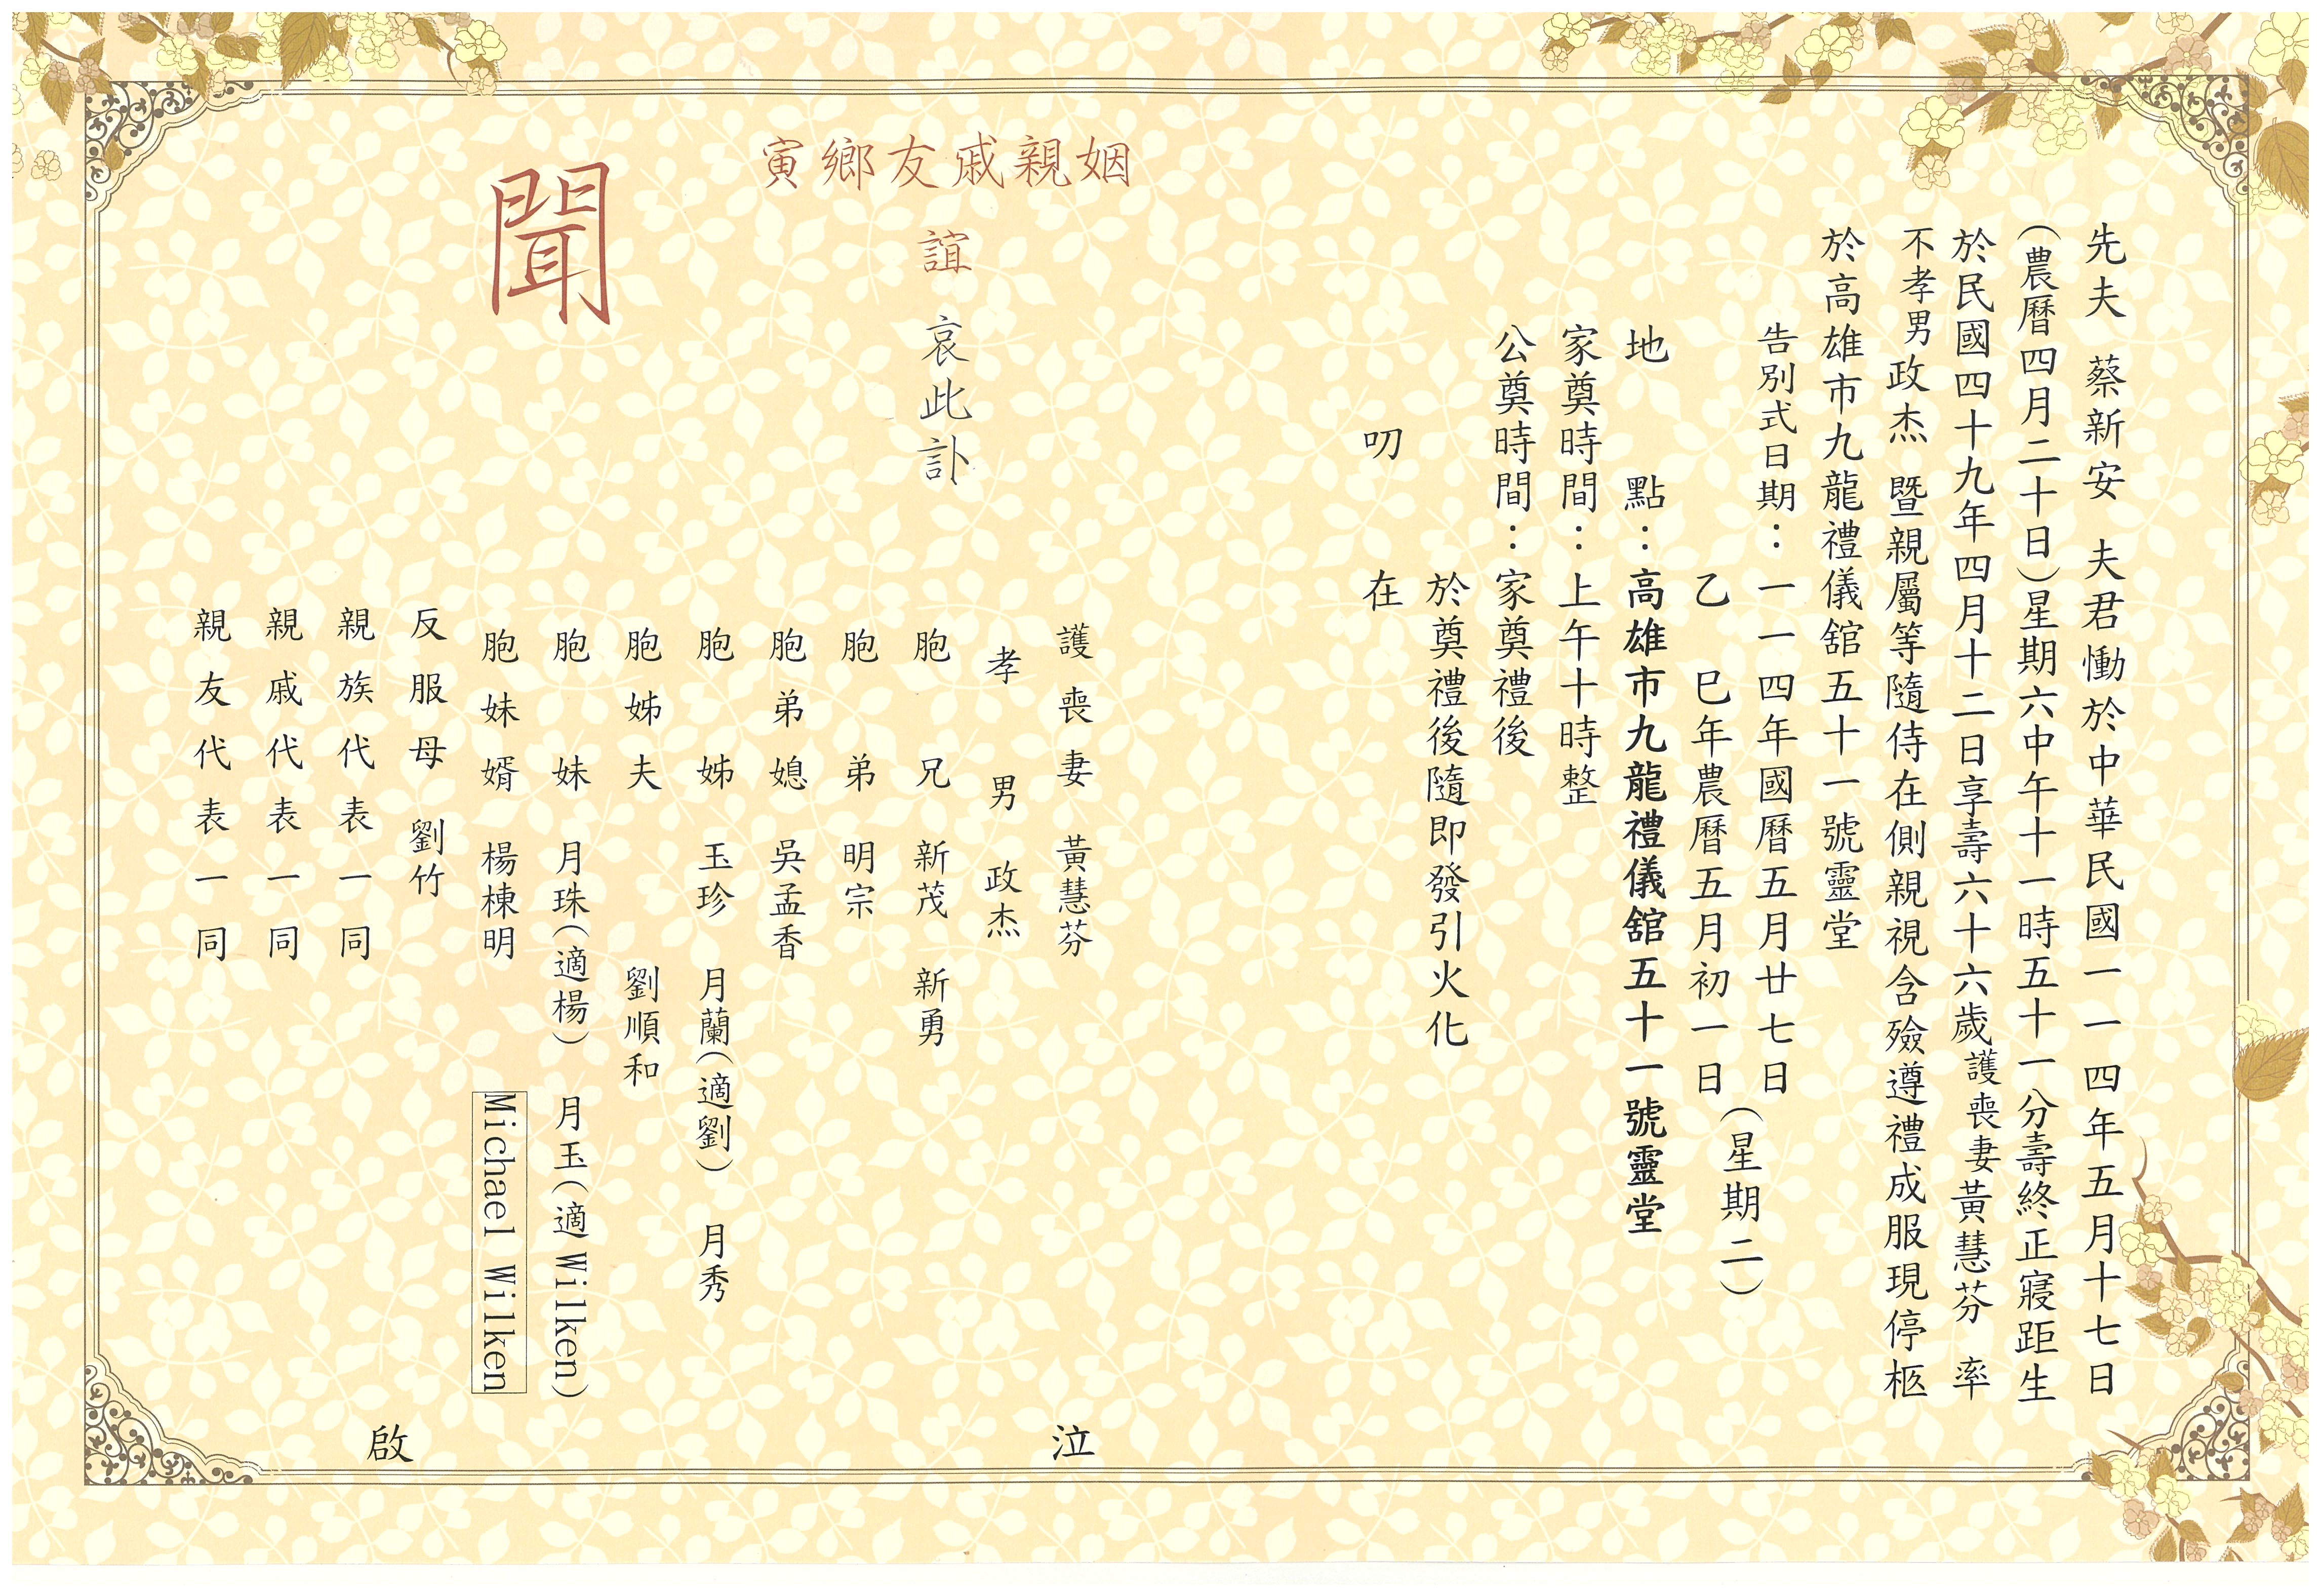 先夫 蔡新安 夫君慟於中華民國一一四年五月十七日
(農曆四月二十日)星期六中午十一時五十一分壽終正寢距生
於民國四十九年四月十二日享壽六十六歲護喪妻黃慧芬 率
不孝男政杰 暨親屬等隨侍在側親視含殮遵禮成服現停柩
於高雄市九龍禮儀舘五十一號靈堂
告別式日期：一一四年國曆五月廿七日
乙巳年農曆五月初一日
(星期二)
地點：高雄市九龍禮儀舘五十一號靈堂
家奠時間：上午十時整
公奠時間：家奠禮後
於奠禮後隨即發引火化
叨在
姻親戚友鄉寅
誼 哀此訃
聞
護喪妻 黃慧芬
孝男 政杰
胞兄 新茂 新勇
胞弟 明宗
胞弟媳 吳孟香
胞姊 玉珍 月蘭(適劉) 月秀
胞姊夫 劉順和
胞妹 月珠(適楊) 月玉(適Wilken)
胞妹婿 楊棟明 Michael Wilken
反服母 劉竹
親族代表一同
親戚代表一同
親友代表一同
泣
啟